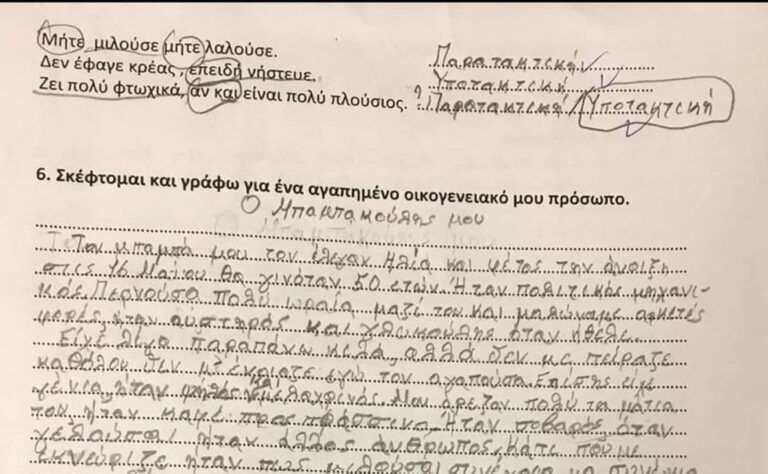 Μήτε μιλούσε μήτε λαλούσε. Παρατακτική
Δεν έφαγε κρέας, επειδή νήστευε. Υποτακτική
Ζει πολύ φτωχικά, αν και είναι πολύ πλούσιος. ? Παρατακτική / Υποτακτική
6. Σκέφτομαι και γράφω για ένα αγαπημένο οικογενειακό μου πρόσωπο.
Ο Μπαμπακούλης μου
Τον μπαμπά μου τον έλεγαν Ηλία και φέτος την άνοιξη
στις 16 Μαΐου θα γινόταν 50 ετών. Ήταν πολιτικός μηχανι-
κός. Περνούσα πολύ ωραία μαζί του και μαλώναμε αρκετές
φορές, ήταν αυστηρός και γλυκούλης όταν ήθελε.
Είχε λίγα παραπάνω κιλά, αλλά δεν με πείραζε
καθόλου δεν μ' ένοιαζε εγώ τον αγαπούσα. Επίσης είχε
γένια, ήταν ψηλός και μελαχρινός. Μου άρεζαν πολύ τα μάτια
του, ήταν καφέ προς πράσινα. Ήταν σοβαρός, όταν
γελούσε ήταν άλλος άνθρωπος, κάτι που με
εκνεύριζε ήταν πως